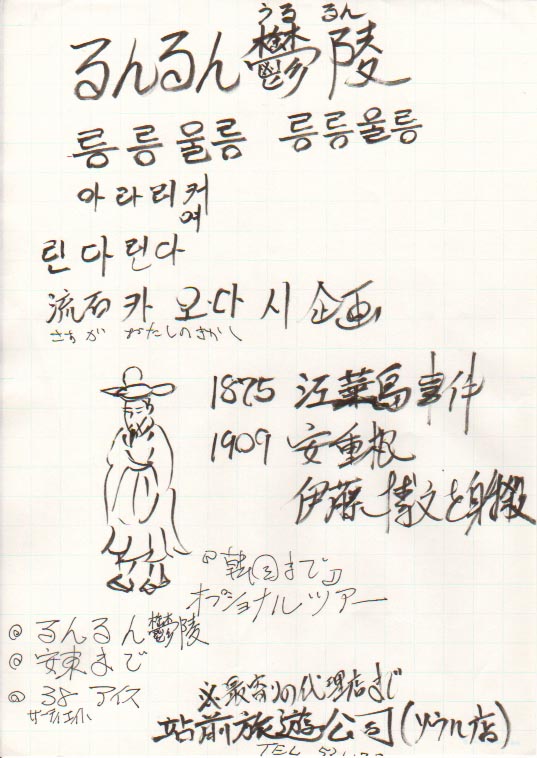 うる るん
るんるん鬱陵
릉릉울릉 릉릉울릉
아라리커
여
린다린다
流石카오다시企画
さすが おたしのきかく
1875 江華島事件
1909 安重根
伊藤博文を射殺
『韓国まで』
オプショナルツアー
◎ るんるん鬱陵
◎ 安東まで
◎ 38 アイス
サーティエイト
※最寄りの代理店まで
站前旅遊公司(ソウル店)
TEL